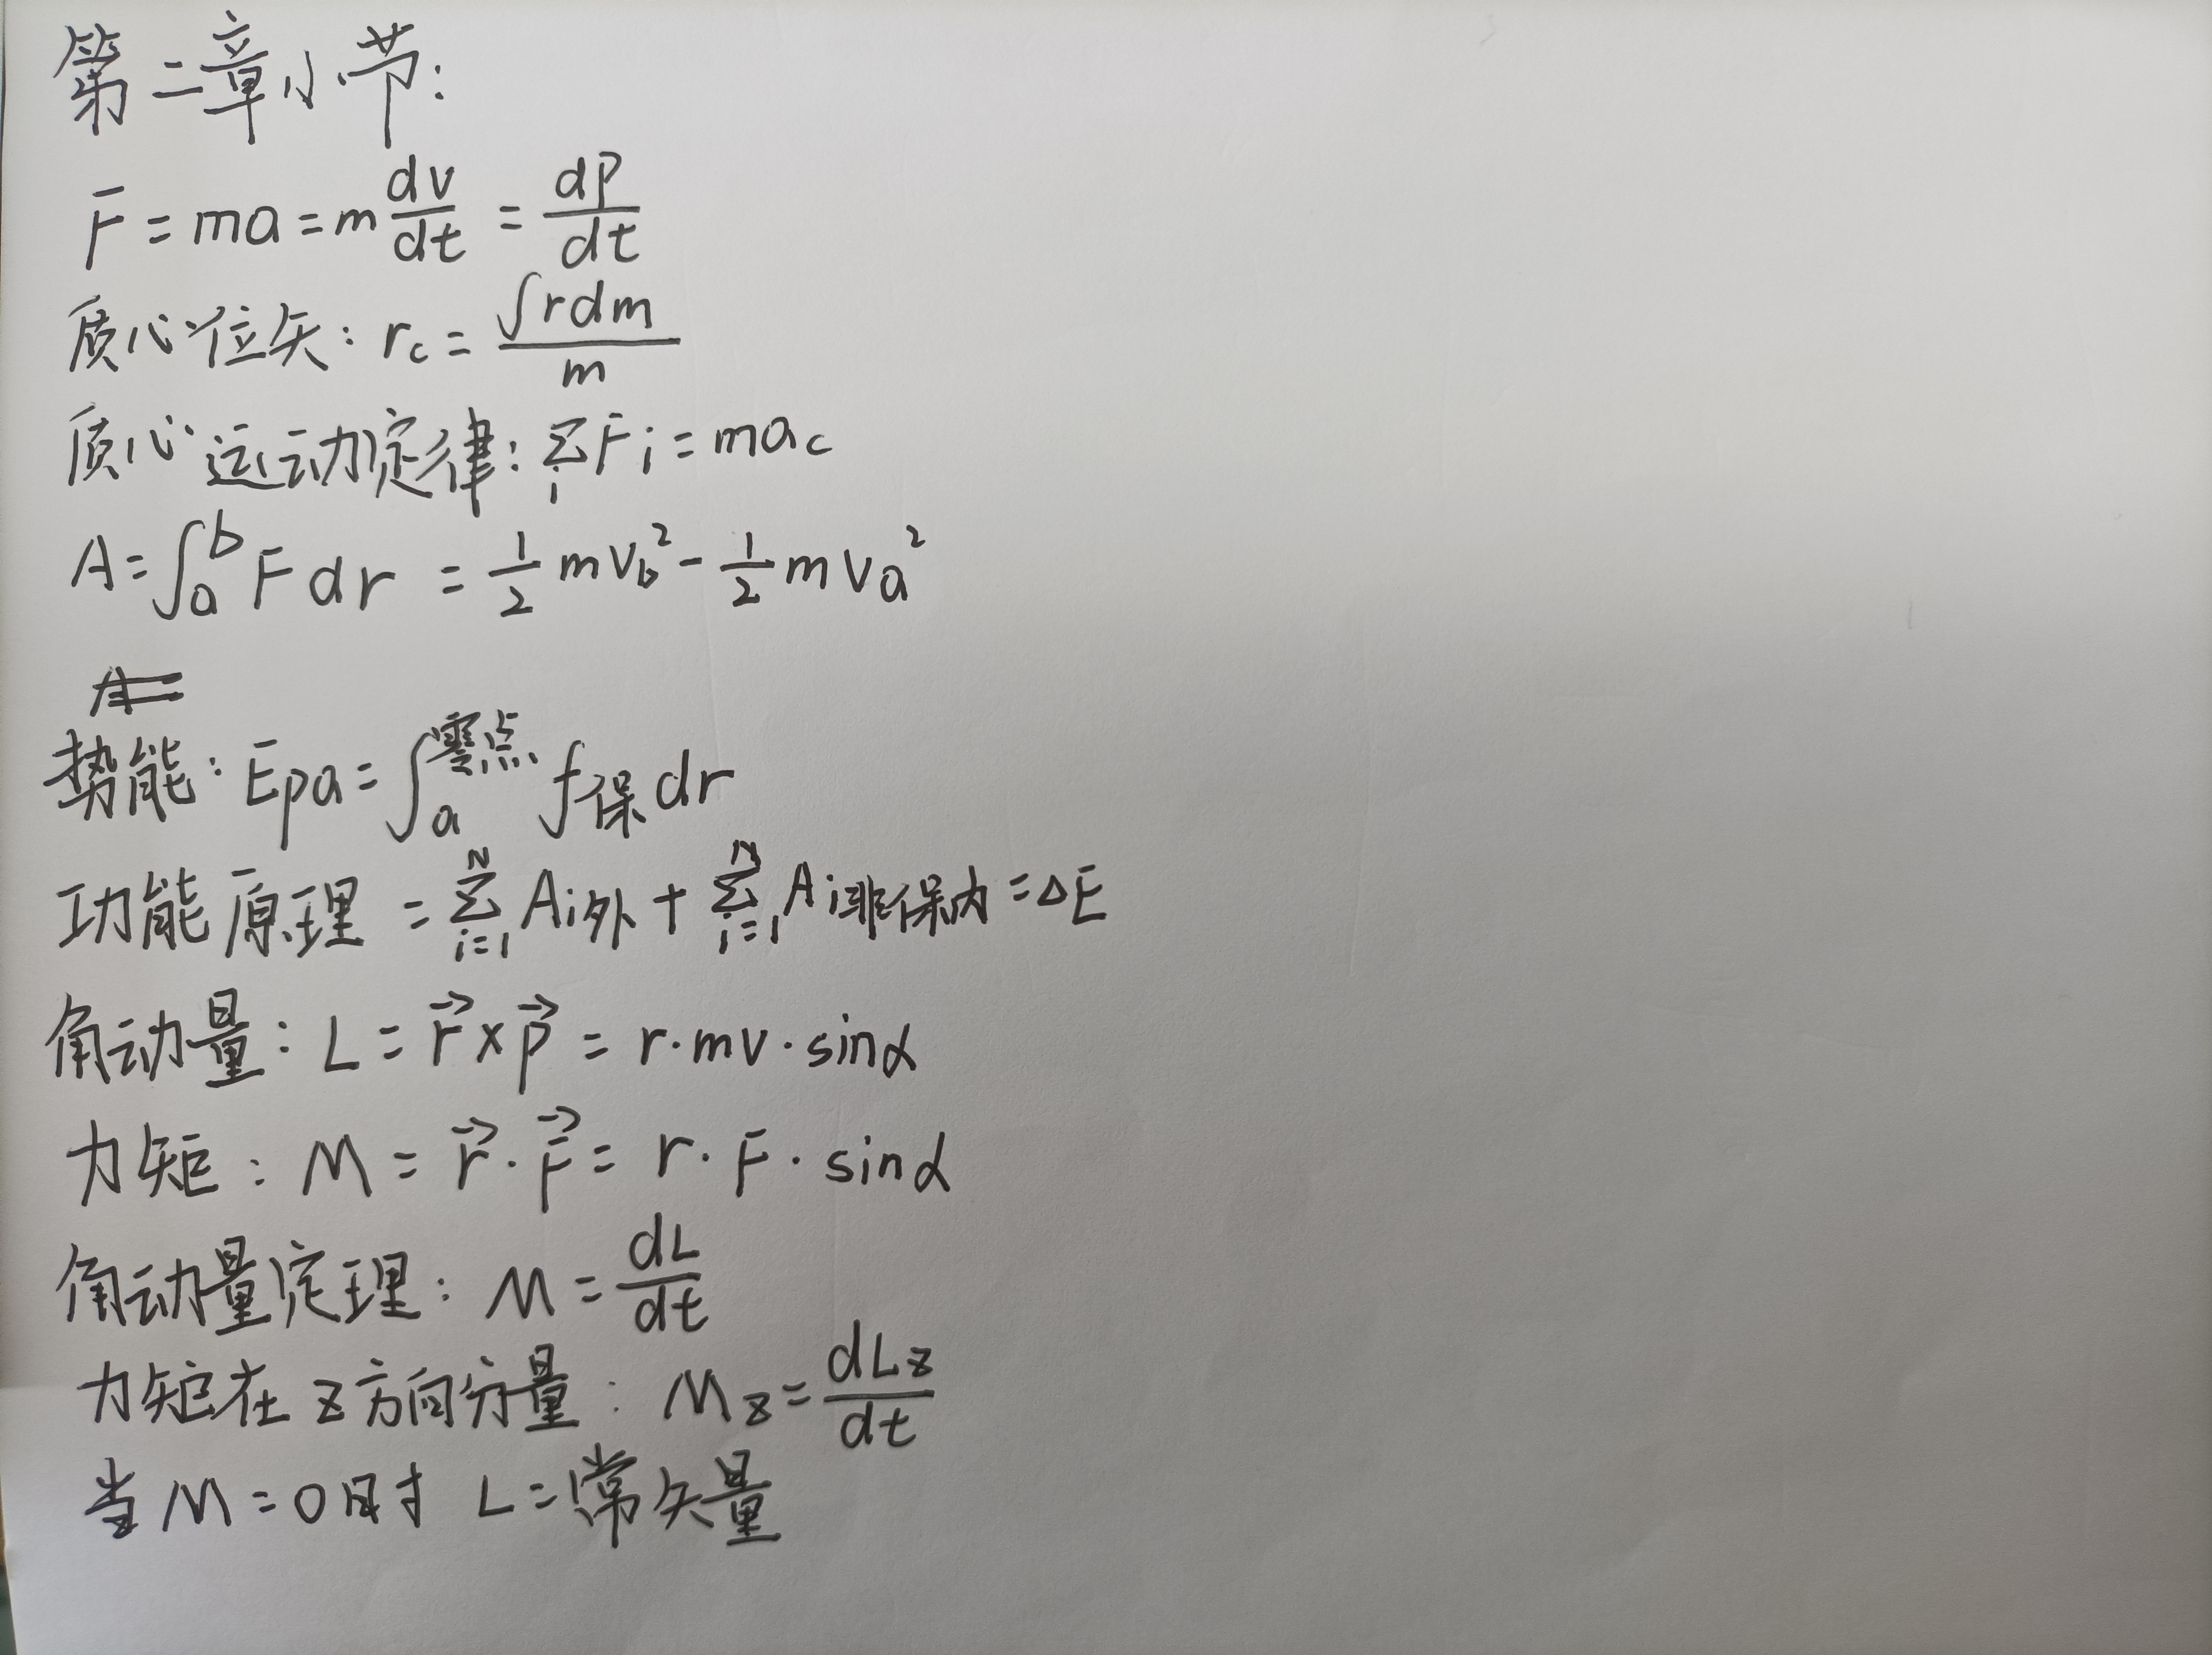 第二章小节:
F = ma = m dv/dt = dP/dt
质心位矢: rc = ∫rdm / m
质心运动定律: Σi Fi = mac
A = ∫_a^b F dr = 1/2 mvb² - 1/2 mva²
势能: Epa = ∫_a^零点 f保 dr
功能原理 = Σ_{i=1}^N Ai外 + Σ_{i=1}^N Ai非保内 = ΔE
角动量: L = r⃗ × p⃗ = r·mv·sinα
力矩: M = r⃗·F⃗ = r·F·sinα
角动量定理: M = dL/dt
力矩在z方向分量: Mz = dLz/dt
当M=0时 L=常矢量